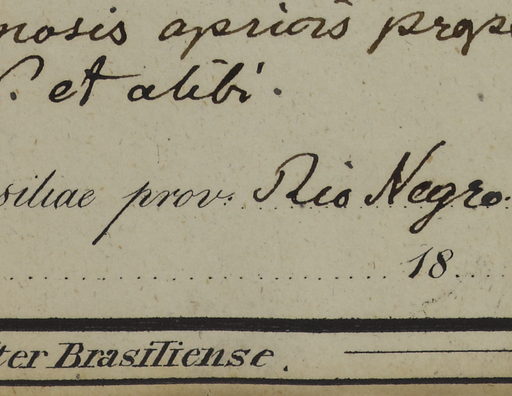 nosis apricis prope
et alibi.
siliae prov. Rio Negro.
18
ter Brasiliense.